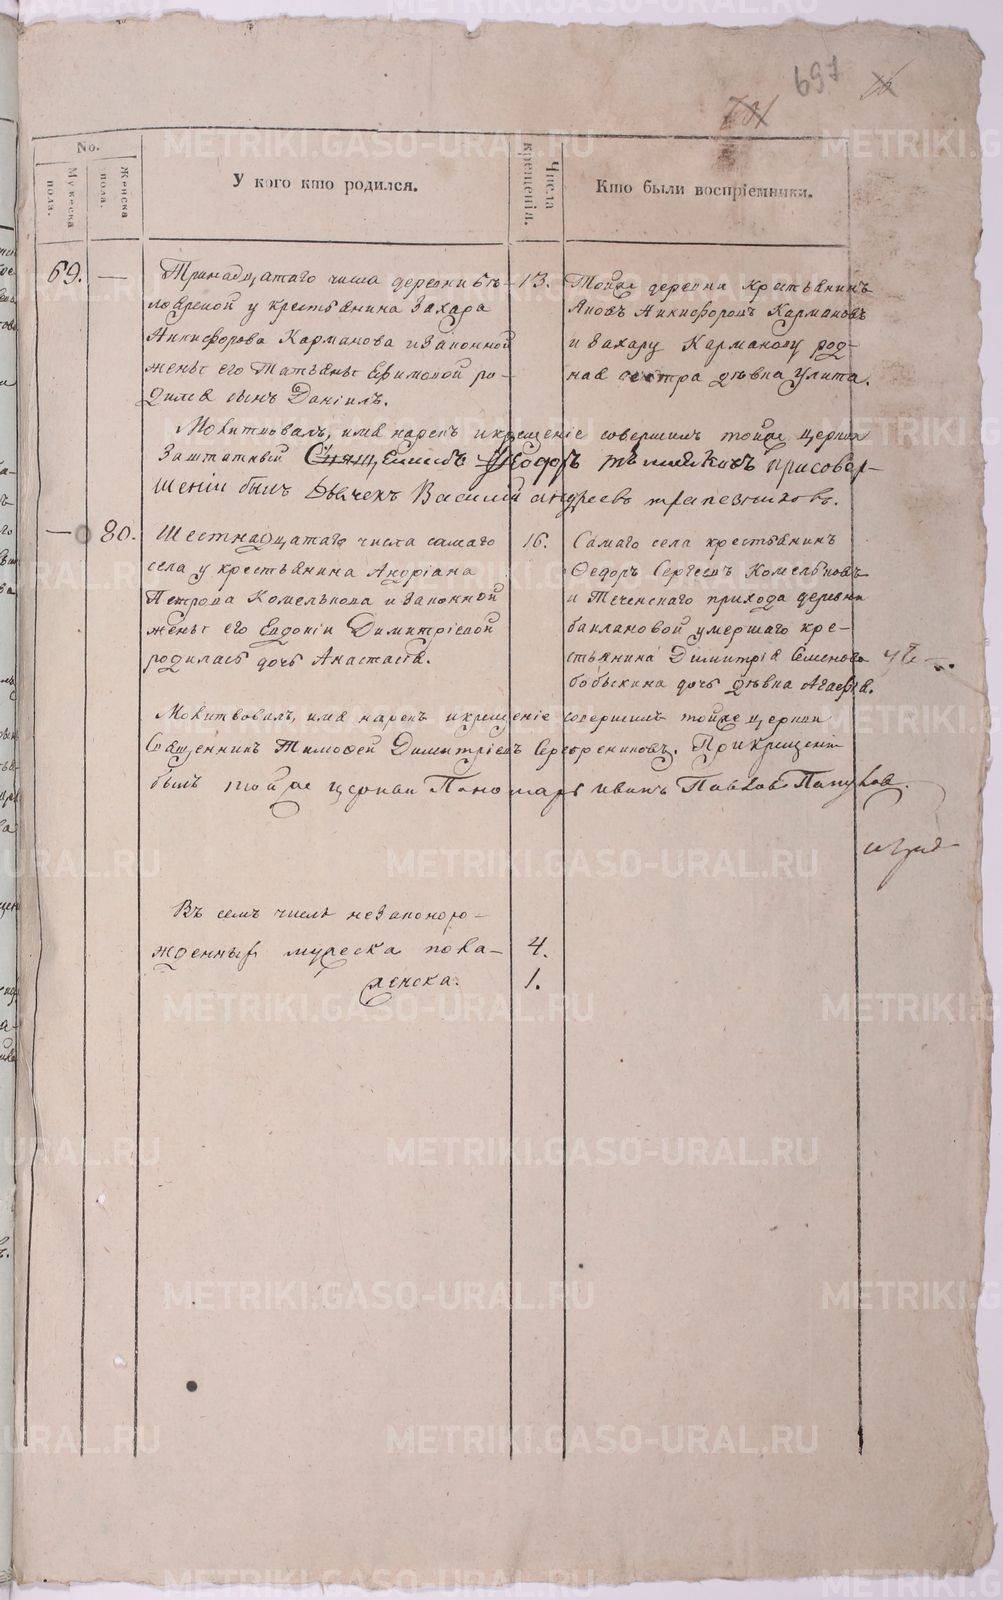 697
No.
Мужеска пола.
Женска пола.
У кого кто родился.
Числа крещенія.
Кто были воспріемники.
69. —
Тринадцатаго числа деревни
ловреной у крестьянина Захара
Анкифорова Карманова и законной
жены его Татьяны Ефимовой ро-
дился сынъ Даніилъ.
13.
Тойже деревни крестьянинъ
Анкифоровъ Кармановъ
и Захару Карманову род-
ная сестра дѣвка Улита.
Молитвовалъ, имя нарекъ и крещеніе совершилъ тойже церкви
Заштатный Священникъ Ѳеодоръ при совер-
шеніи былъ Дьячекъ Василій Андреевъ Трапезниковъ.
— 80.
Шестнадцатаго числа самаго
села у крестьянина Андріана
Петрова Комелькова и законной
жены его Евдокіи Димитріевой
родилась дочь Анастасія.
16.
Самаго села крестьянинъ
Ѳедоръ Сергеевъ Комельковъ
и Теченскаго прихода деревни
баклановой умершаго кре-
стьянина Димитрія Семенова
бобыскина дочь дѣвка Агафія.
Молитвовалъ, имя нарекъ и крещеніе совершилъ тойже церкви
Священникъ Тимофей Димитріевъ Серебрениковъ. При крещеніи
былъ тойже церкви Пономарь Иванъ Павловъ Папуловъ.
Въ семъ числѣ незаконоро-
жденныхъ мужеска пола — 4.
женска. 1.
METRIKI.GASO-URAL.RU